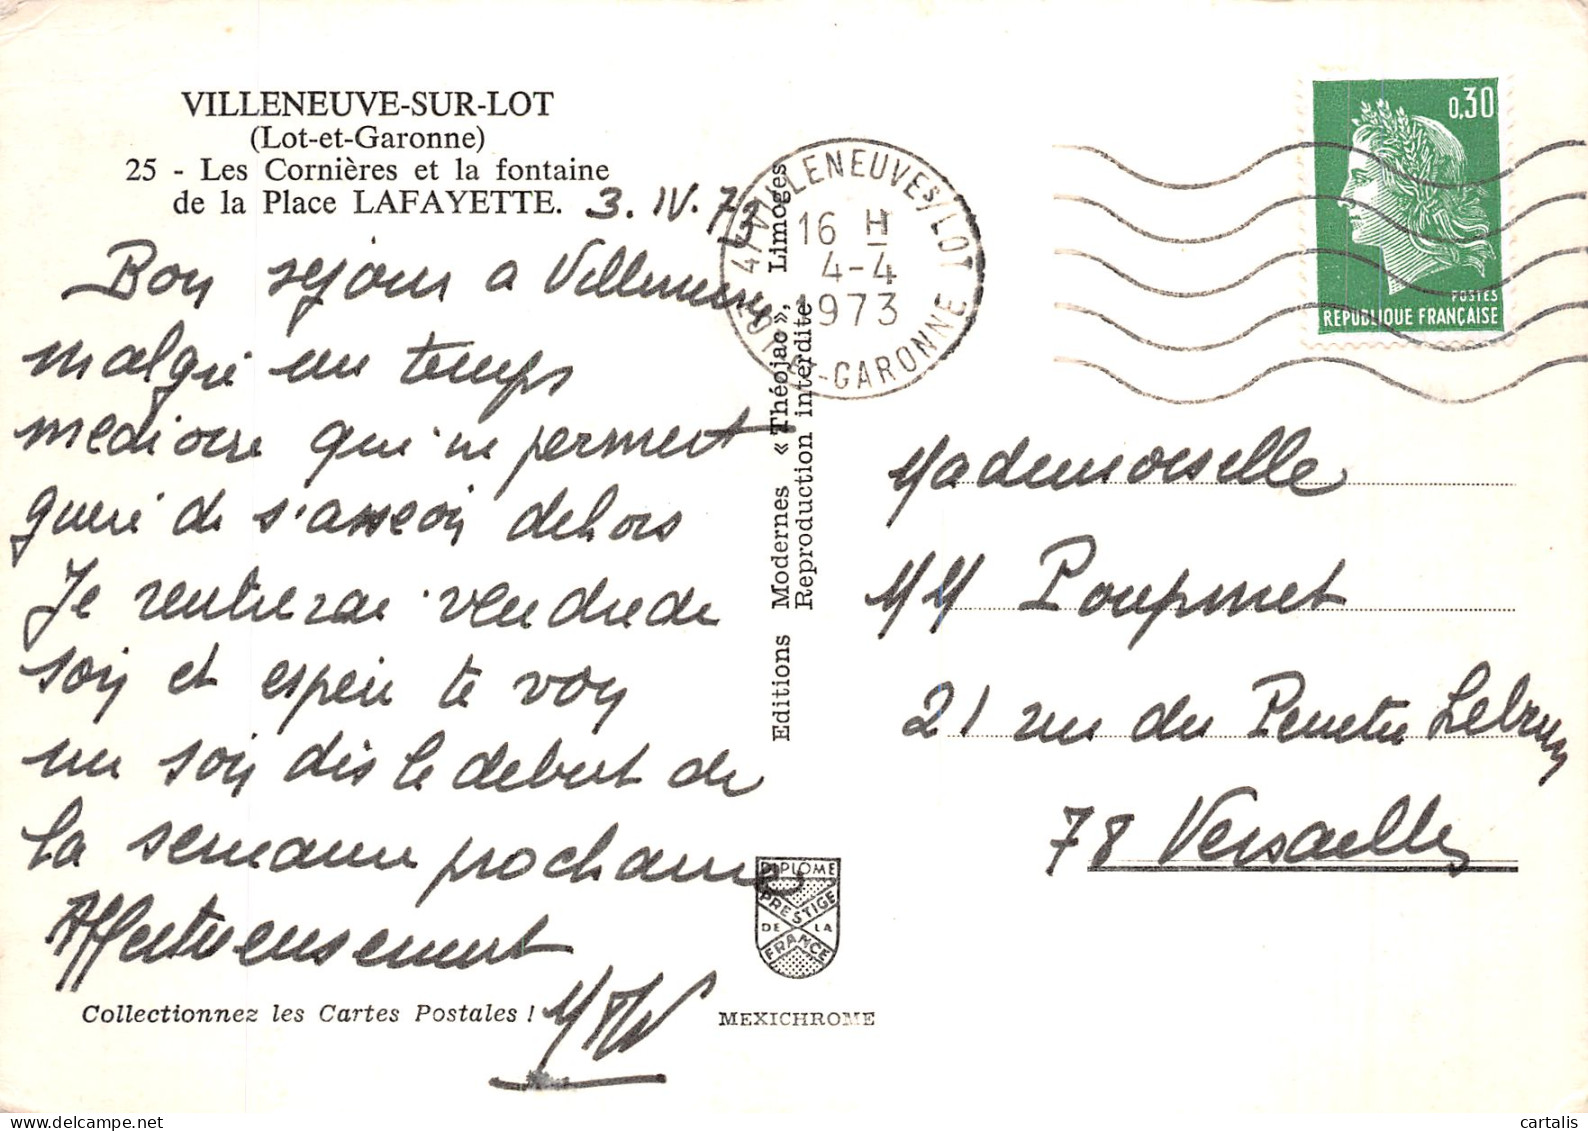 VILLENEUVE-SUR-LOT
(Lot-et-Garonne)
25 - Les Cornières et la fontaine
de la Place LAFAYETTE.
3. IV. 73
Bon sejour a Villeneuve
malgré un temps
mediocre qui ne permet
guere de s'asseoir dehors
Je rentrerai vendredi
soir et espere te voir
un soir dès le debut de
la semaine prochaine
Affectueusement
Collectionnez les Cartes Postales !
Editions Modernes « Théojac », Limoges
Reproduction interdite
DIPLOME
PRESTIGE
DE LA
FRANCE
MEXICHROME
47 VILLENEUVE S/LOT
16 H
4-4
1973
LOT-&-GARONNE
0,30
POSTES
REPUBLIQUE FRANÇAISE
Mademoiselle
MM
21 rue du Peintre Lebrun
78 Versailles
cartalis